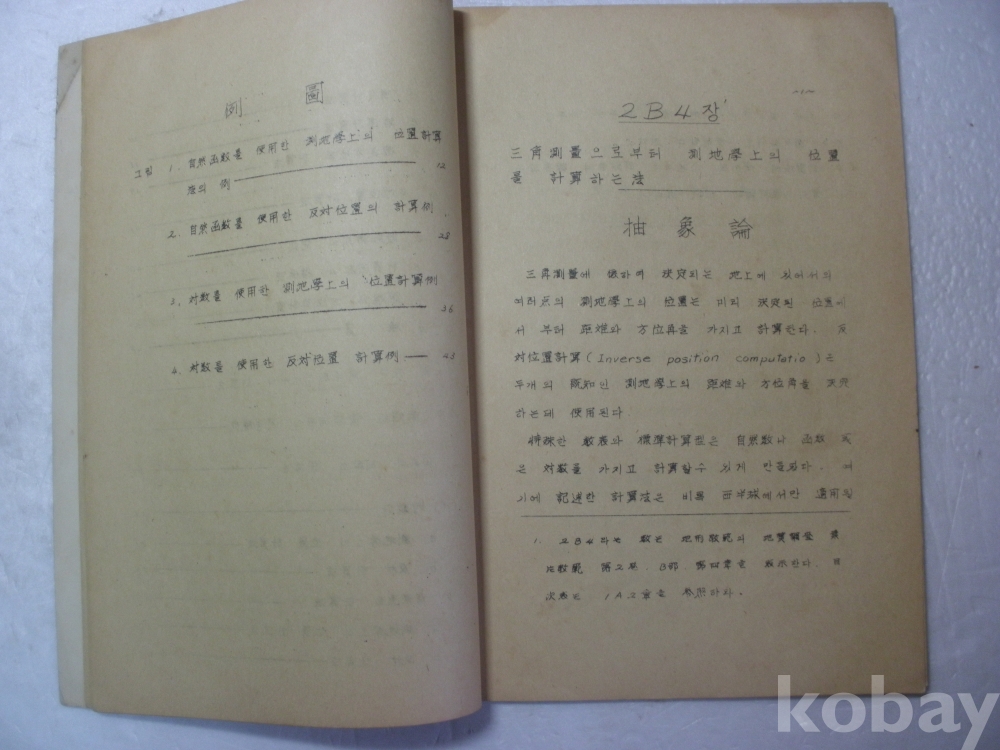 例 圖
그림 1. 自然函數를 使用한 測地學上의 位置計算
法의 例 12
2. 自然函數를 使用한 反対位置의 計算例
28
3. 対數를 使用한 測地學上의 位置計算例
36
4. 対數를 使用한 反対位置 計算例 43
-1-
2B4장
三角測量으로부터 測地學上의 位置
를 計算하는 法
抽象論
三角測量에 依하여 決定되는 地上에 있어서의
여러点의 測地學上의 位置는 미리 決定된 位置에
서 부터 距離와 方位角을 가지고 計算한다. 反
対位置計算(Inverse position computatio)은
두개의 既知인 測地學上의 距離와 方位角을 決定
하는데 使用된다
特殊한 數表와 標準計算型은 自然數나 函數 或
은 対數를 가지고 計算할수 있게 만들었다. 여
기에 記述한 計算法은 비록 西半球에서만 適用된
1. 2B4라는 數는 地形敎範의 地質
敎範 第2点, B部 第四章을 表示한다. 目
次表는 1A2章을 參照하라.
kobay